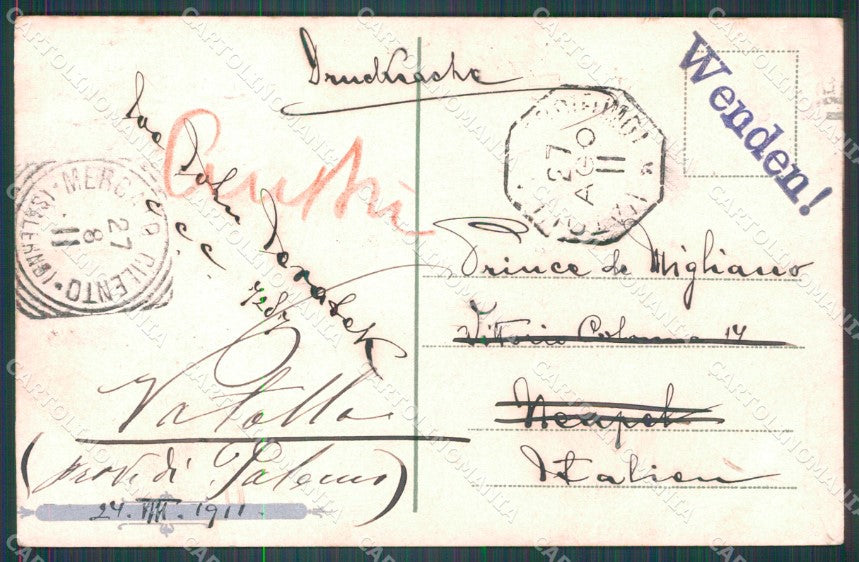 Drucksache
Wenden!
27
AGO
11
MERCATO CILENTO (SALERNO)
27
8
11
John Jerabek
Prince de Migliano
Vittorio Colonna 14
Neapel
Italien
Vatolla
(prov. di Salerno)
24. VIII. 1911
CARTOLINOMANIA